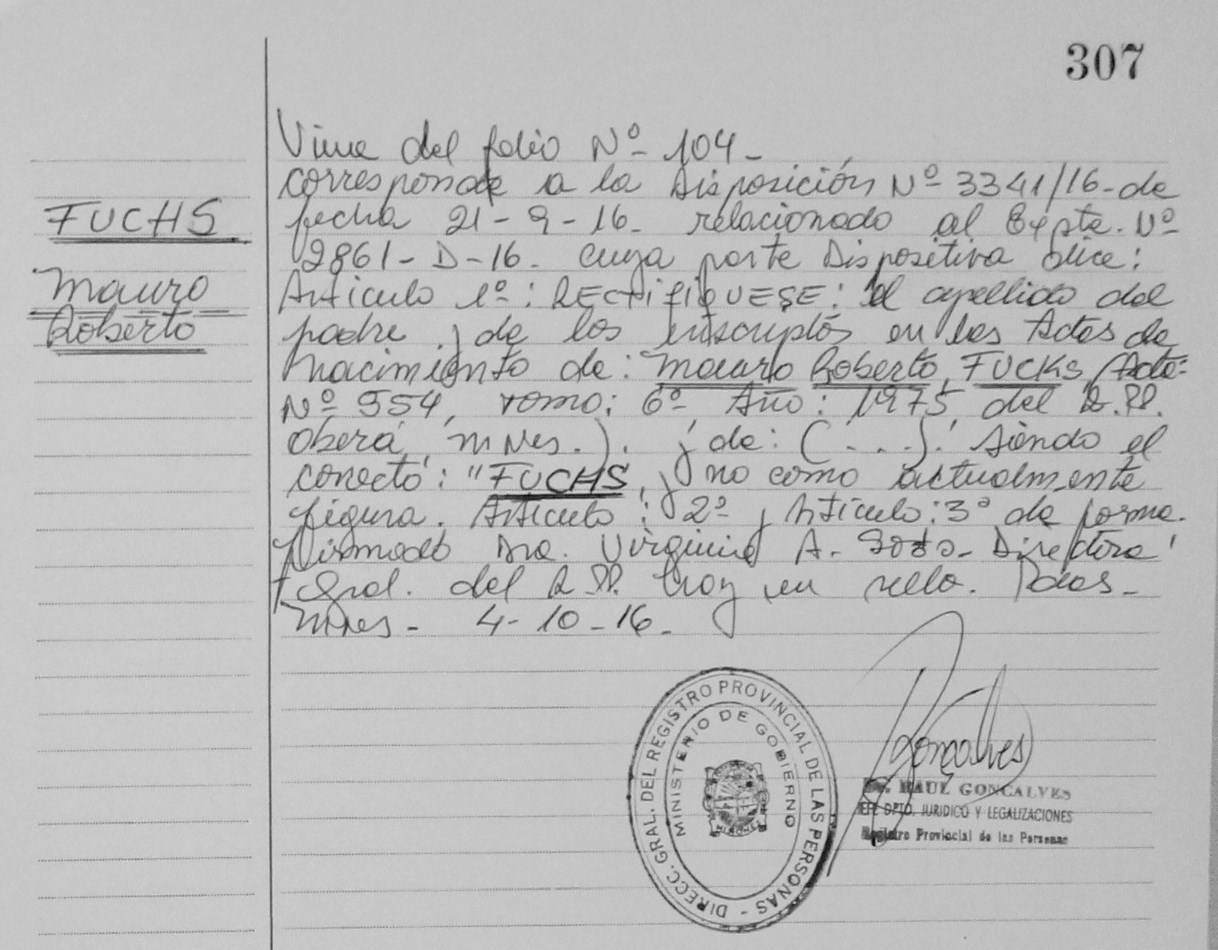 307
FUCHS
Mauro
Roberto
Viene del folio Nº 104-
corresponde a la Disposición Nº 3341/16- de
fecha 21-9-16- relacionado al Expte. Nº
2861-D-16- cuya parte Dispositiva dice:
Articulo 1º: RECTIFIQUESE: el apellido del
padre y de los inscriptos en las Actas de
Nacimiento de: Mauro Roberto FUCKS (Acta:
Nº 554, Tomo: 6º Año: 1975 del R.PP.
Oberá, Mnes.). y de: (....). Siendo el
correcto: "FUCHS, y no como actualmente
figura. Articulo: 2º y Articulo: 3º de forma.
Firmado Dra. Virginia A. - Directora
Gral. del R.PP. Hay un sello. Pdas-
Mnes- 4-10-16-
DIRECC. GRAL. DEL REGISTRO PROVINCIAL DE LAS PERSONAS -
MINISTERIO DE GOBIERNO
MISIONES
Goncalves
Dr. RAUL GONCALVES
JEFE DPTO. JURIDICO Y LEGALIZACIONES
Registro Provincial de las Personas